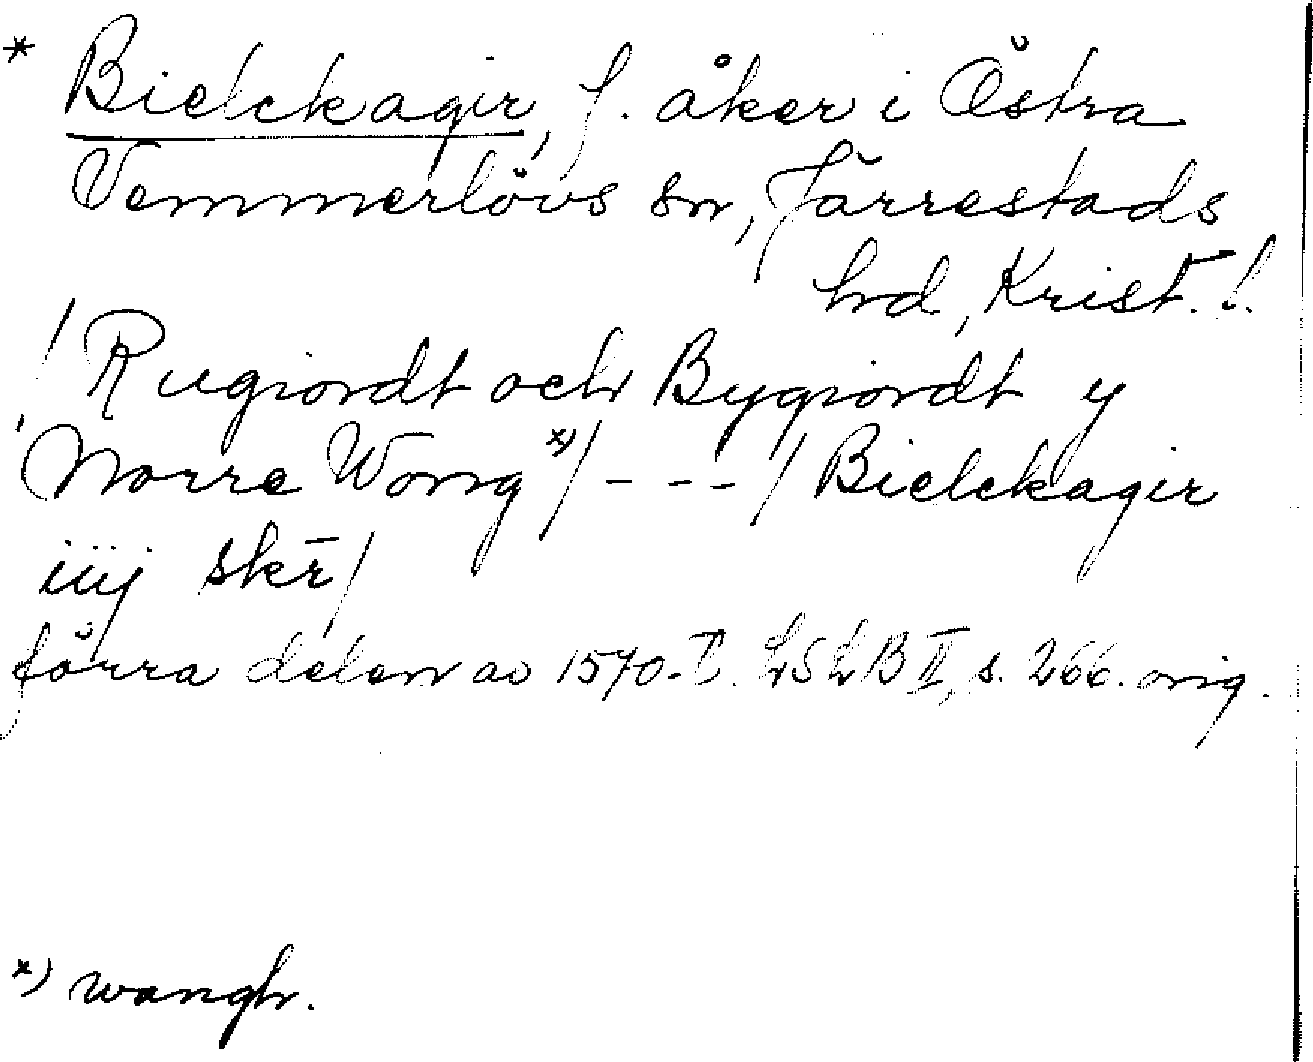 * Bielckagir, f. åker i Östra
Vemmerlövs sn, Järrestads
hd, Krist. l.
/ Rugiordt och Bygiordt y
Norre Wong *) / - - - / Bielckagir
iiij skr̄ /
förra delen av 1570-t. LSLB II, s. 266. orig.
*) wangh.